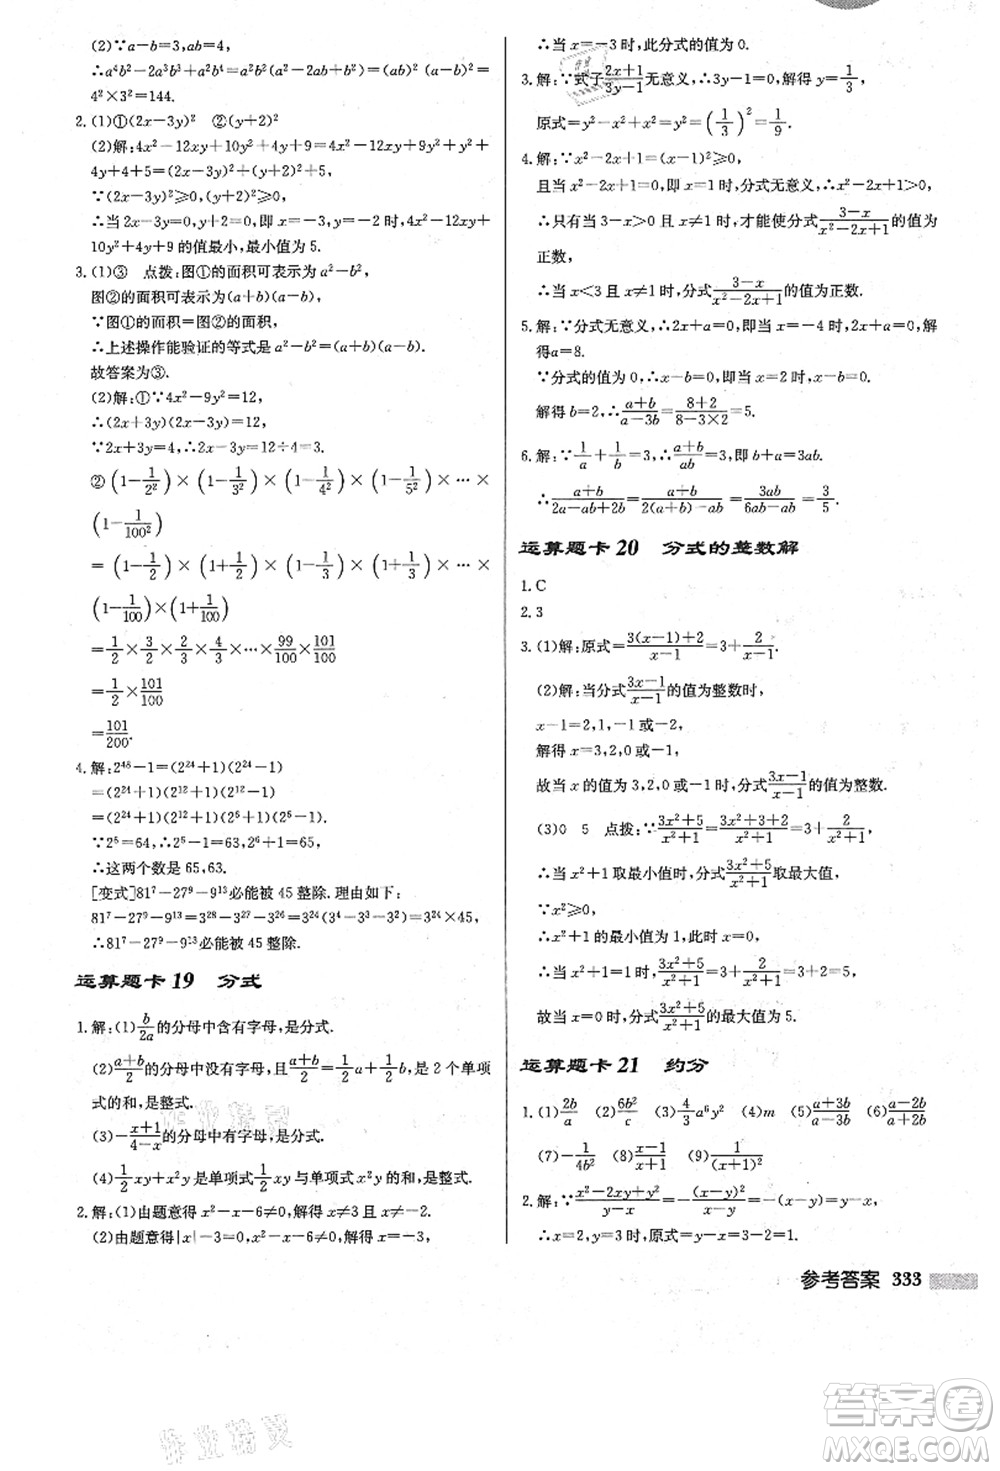 (2)∵a-b=3,ab=4,
∴a⁴b²-2a³b³+a²b⁴=a²b²(a²-2ab+b²)=(ab)²(a-b)²=
4²×3²=144.
2.(1)①(2x-3y)² ②(y+2)²
(2)解:4x²-12xy+10y²+4y+9=4x²-12xy+9y²+y²+
4y+4+5=(2x-3y)²+(y+2)²+5.
∵(2x-3y)²≥0,(y+2)²≥0,
∴当2x-3y=0,y+2=0,即x=-3,y=-2时,4x²-12xy+
10y²+4y+9的值最小,最小值为5.
3.(1)③ 点拨:图①的面积可表示为a²-b²,
图②的面积可表示为(a+b)(a-b),
∵图①的面积=图②的面积,
∴上述操作能验证的等式是a²-b²=(a+b)(a-b).
故答案为③.
(2)解:①∵4x²-9y²=12,
∴(2x+3y)(2x-3y)=12,
∵2x+3y=4,∴2x-3y=12÷4=3.
②(1-1/2²)×(1-1/3²)×(1-1/4²)×(1-1/5²)×…×
(1-1/100²)
=(1-1/2)×(1+1/2)×(1-1/3)×(1+1/3)×…×
(1-1/100)×(1+1/100)
=1/2×3/2×2/3×4/3×…×99/100×101/100
=1/2×101/100
=101/200.
4.解:2⁴⁸-1=(2²⁴+1)(2²⁴-1)
=(2²⁴+1)(2¹²+1)(2¹²-1)
=(2²⁴+1)(2¹²+1)(2⁶+1)(2⁶-1).
∵2⁶=64,∴2⁶-1=63,2⁶+1=65,
∴这两个数是65,63.
[变式]81⁷-27⁹-9¹³必能被45整除.理由如下:
81⁷-27⁹-9¹³=3²⁸-3²⁷-3²⁶=3²⁴(3⁴-3³-3²)=3²⁴×45,
∴81⁷-27⁹-9¹³必能被45整除.
运算题卡19 分式
1.解:(1)b/2a的分母中含有字母,是分式.
(2)(a+b)/2的分母中不含有字母,(a+b)/2=1/2(a+b)=1/2a+1/2b,是2个单项
式的和,是整式.
(3)-(x+1)/(4-x)的分母中有字母,是分式.
(4)1/2xy+x²y是单项式1/2xy与单项式x²y的和,是整式.
2.解:(1)由题意得x²-x-6≠0,解得x≠3且x≠-2.
(2)由题意得|x|-3=0,x²-x-6≠0,解得x=-3,
∴当x=-3时,此分式的值为0.
3.解:∵式子(2x+1)/(3y-1)无意义,∴3y-1=0,解得y=1/3,
原式=y²-x²+x²=y²=(1/3)²=1/9.
4.解:∵x²-2x+1=(x-1)²≥0,
且当x²-2x+1=0,即x=1时,分式无意义,
∴只有当3-x>0且x≠1时,才能使分式(3-x)/(x²-2x+1)的值为
正数,
∴当x<3且x≠1时,分式(3-x)/(x²-2x+1)的值为正数.
5.解:∵分式无意义,∴2x+a=0,即当x=-4时,2x+a=0,解
得a=8.
∵分式的值为0,∴x-b=0,即当x=2时,x-b=0,
解得b=2,∴(a+b)/(a-3b)=(8+2)/(8-3×2)=5.
6.解:∵1/a+1/b=3,∴(a+b)/ab=3,即b+a=3ab.
∴(a+b)/(2a-ab+2b)=(a+b)/(2(a+b)-ab)=3ab/(6ab-ab)=3/5.
运算题卡20 分式的整数解
1.C
2.3
3.(1)解:原式=(3(x-1)+2)/(x-1)=3+2/(x-1).
(2)解:当分式(3x-1)/(x-1)的值为整数时,
x-1=2,1,-1或-2,
解得x=3,2,0或-1,
故当x的值为3,2,0或-1时,分式(3x-1)/(x-1)的值为整数.
(3)0 5 点拨:∵(3x²+5)/(x²+1)=(3x²+3+2)/(x²+1)=3+2/(x²+1),
∴当x²+1取最小值时,分式(3x²+5)/(x²+1)取最大值,
∵x²≥0,
∴x²+1的最小值为1,此时x=0,
∴当x=0时,(3x²+5)/(x²+1)=3+2=5,
故当x=0时,分式(3x²+5)/(x²+1)的最大值为5.
运算题卡21 约分
1.(1)2b/a (2)6b²/c (3)4/3a⁶y² (4)m (5)(a+3b)/(a-3b) (6)(a-2b)/(a+2b)
(7)-1/4b² (8)(x-1)/(x+1) (9)1/(x+1)²
2.解:∵(x²-2xy+y²)/(x-y)=(x-y)²/(x-y)=x-y,
∴当x=3,y=2时,原式=x-y=3-2=1.
参考答案 333
作业精灵
作业精灵
答案圈
MXQE.COM